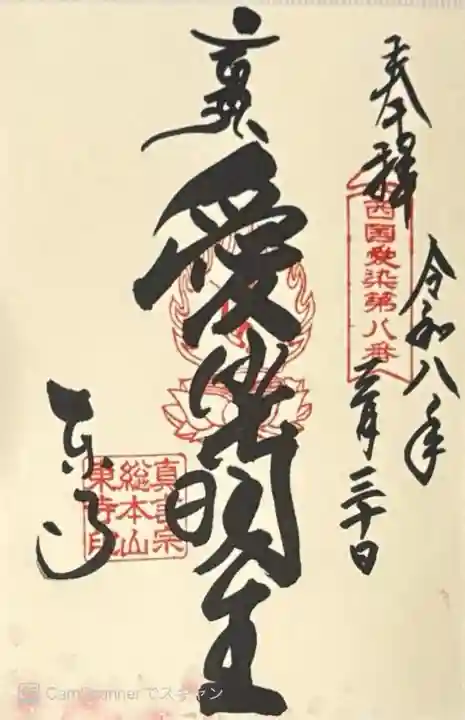 奉拝
西国愛染第八番
令和八年
三月三十日
愛染明王
東寺
真言宗
総本山
東寺印
CamScannerでスキャン